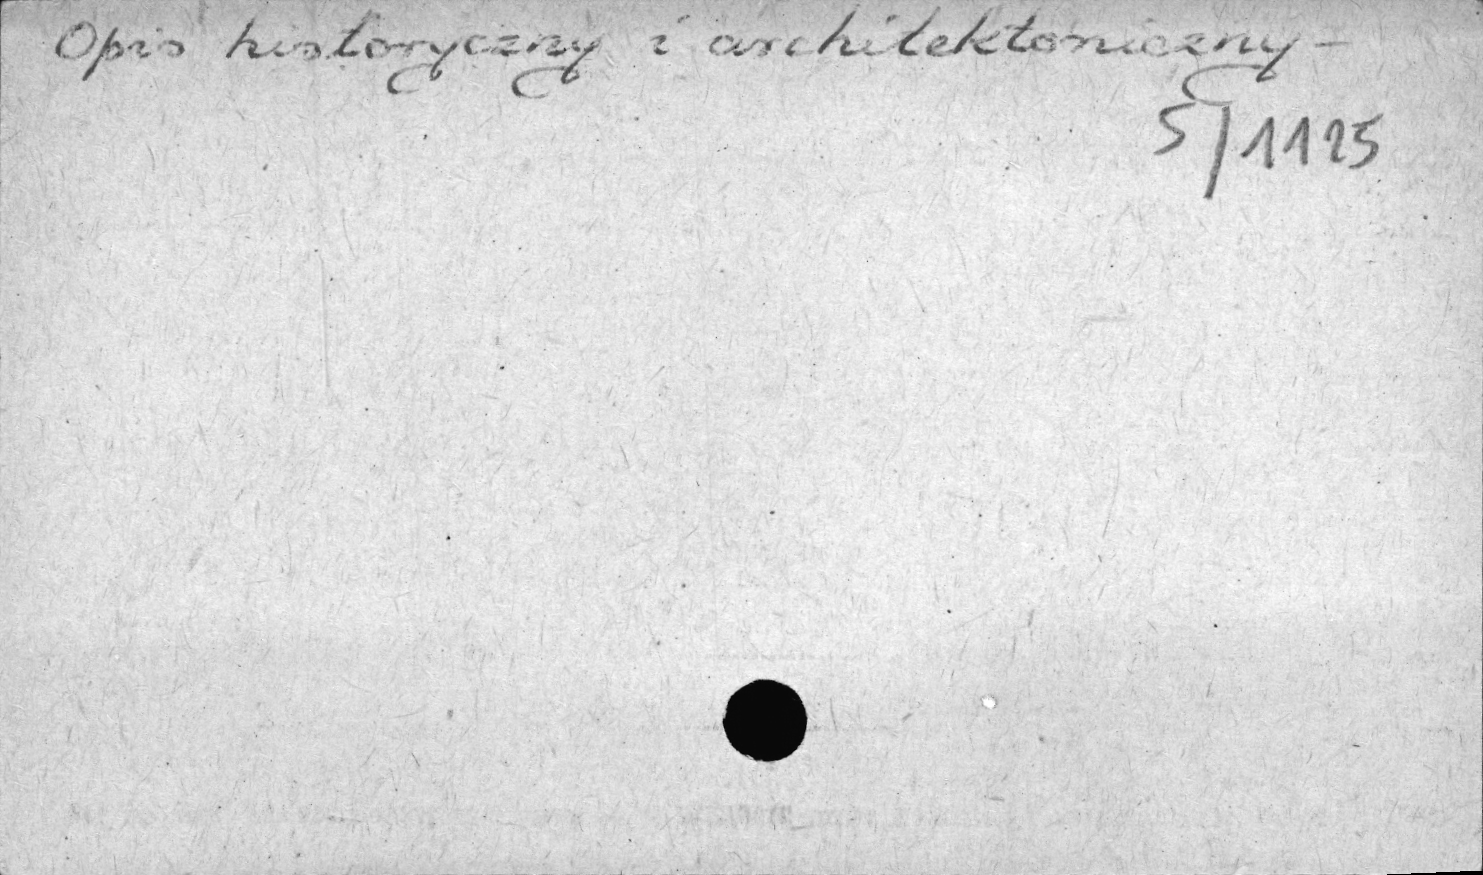 Opis historyczny i architektoniczny -
S/1125